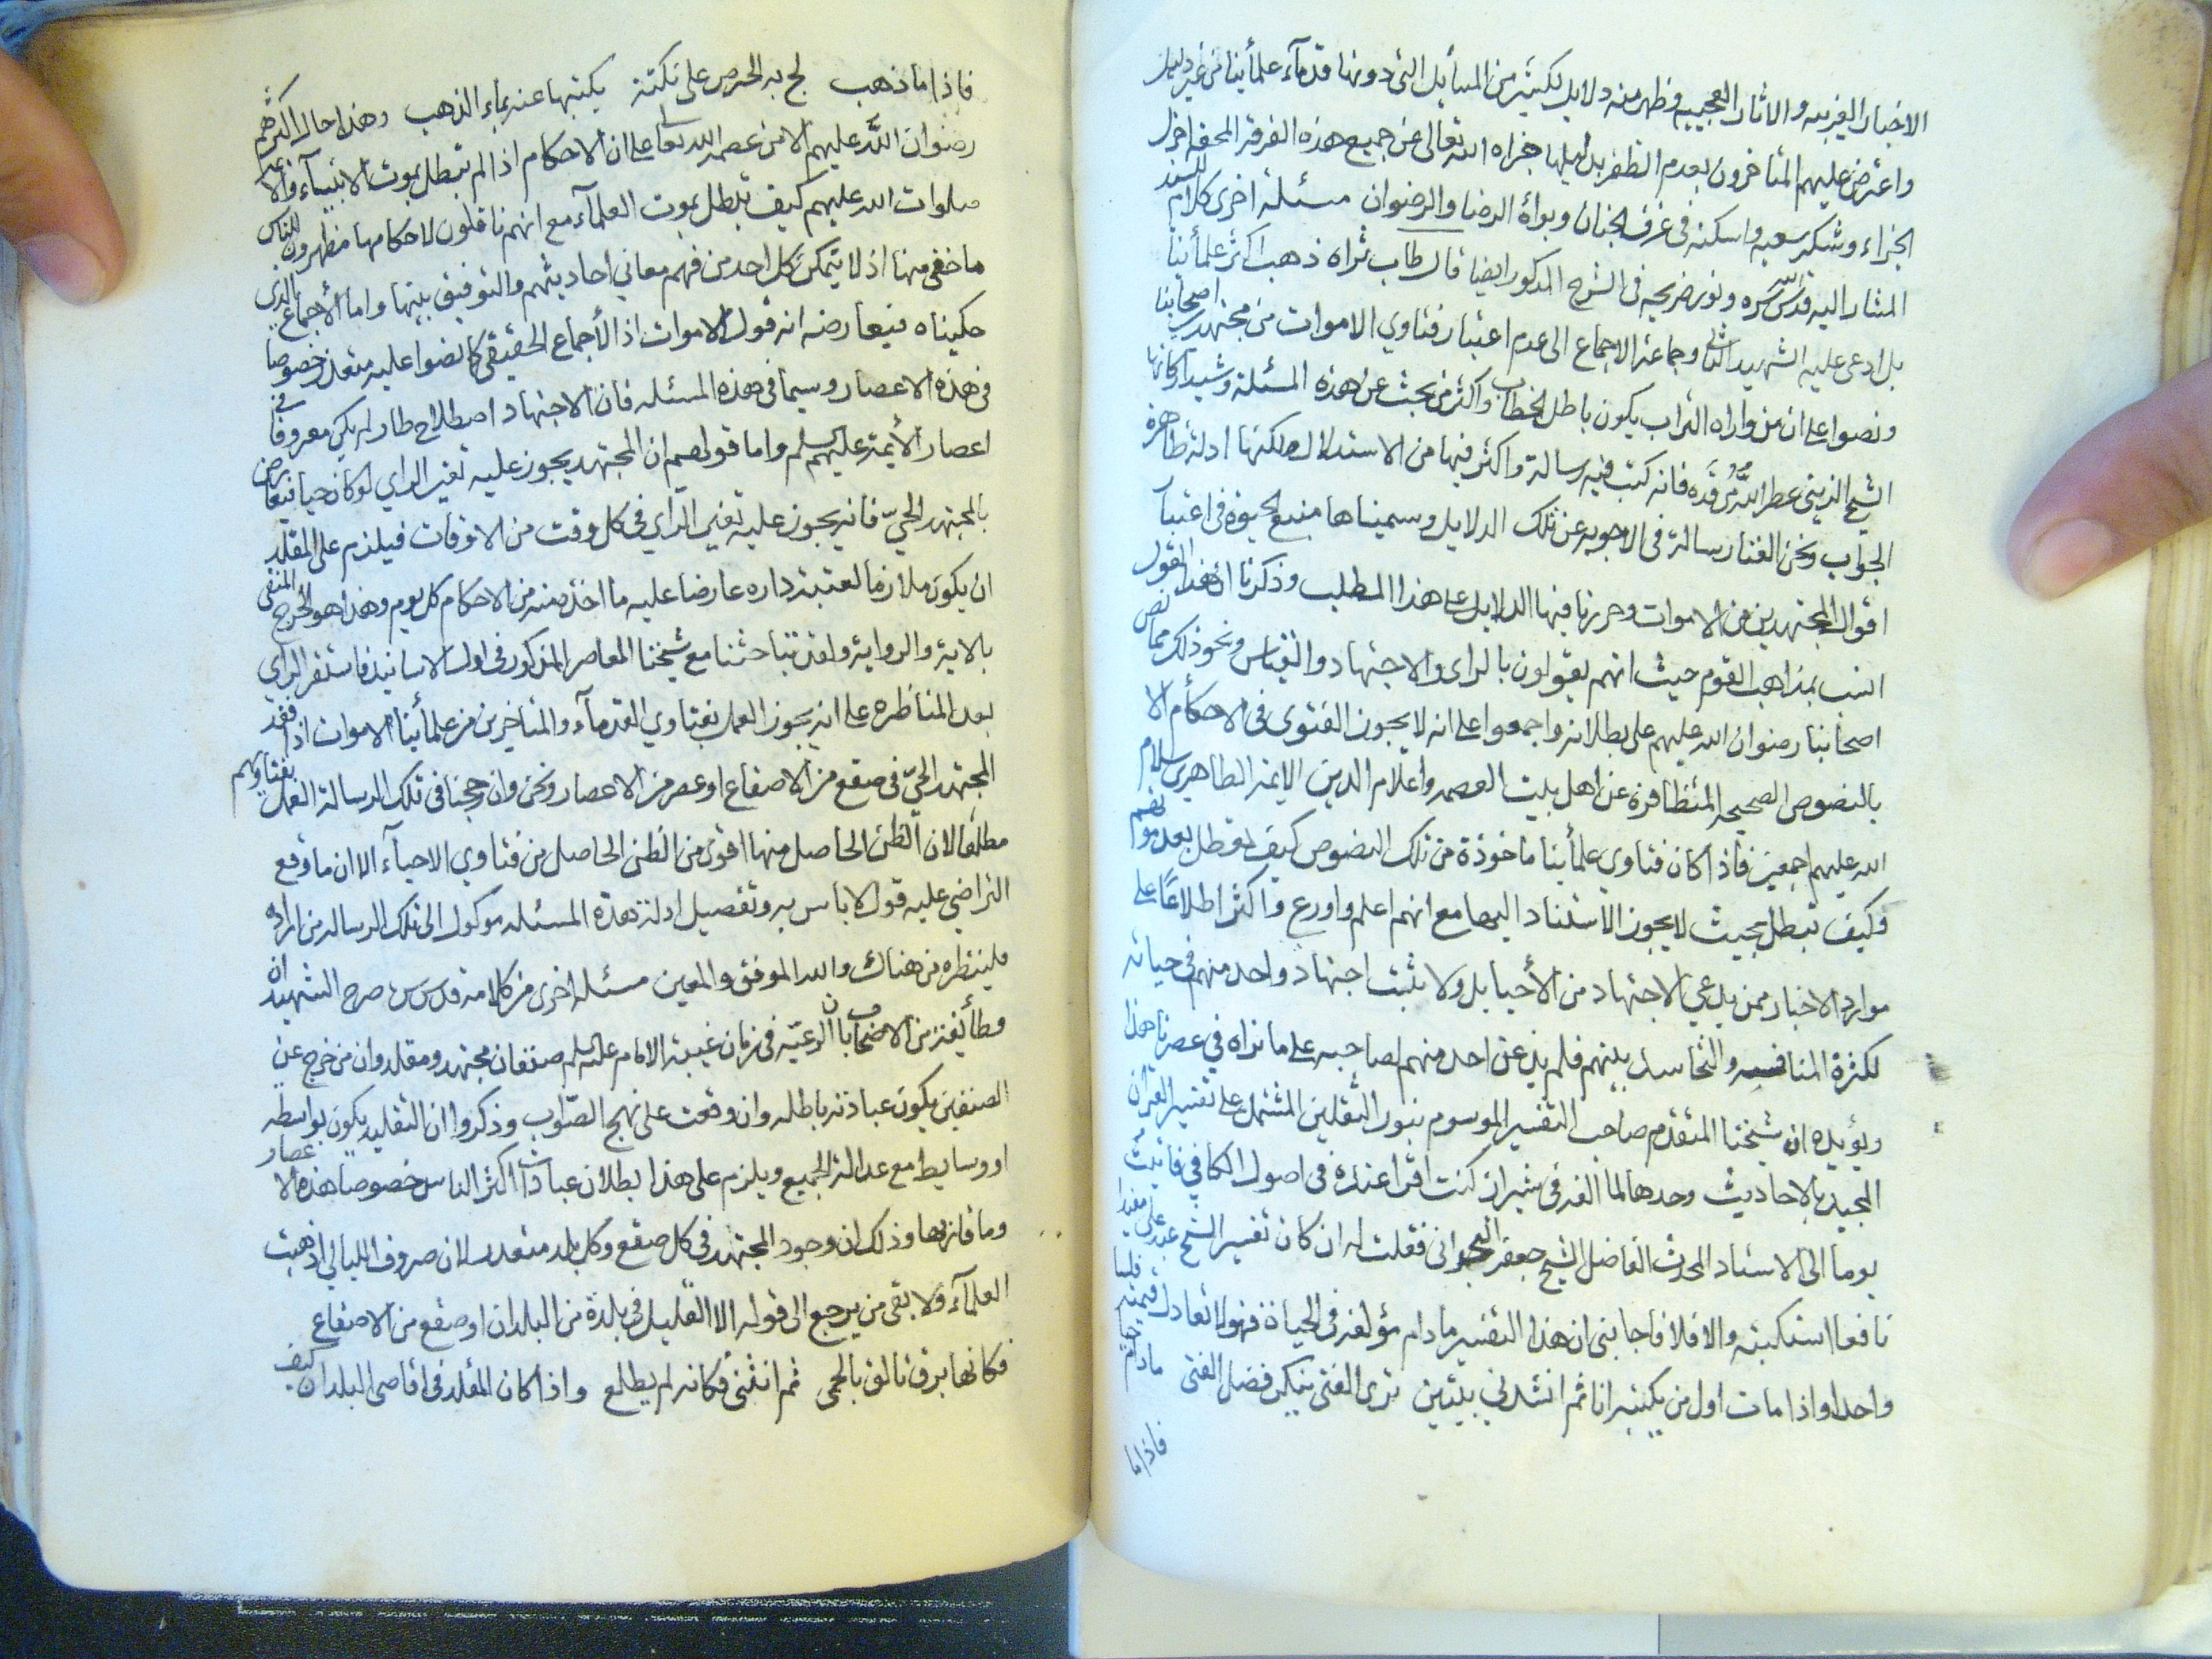 الاخبار الغريبه والاثار العجيبه وظهر منه دلايل لكثير من المسأيل التي دونها قدمآء علمأينا من غير دليل
واعترض عليهم المتأخرون بعدم الظفر بدليلها فجزاه الله تعالى عن جميع هذه الفرقة المحقه اجزل
الجزاء وشكر سعيه واسكنه في غرف الجنان وبوأه الرضا والرضوان مسئلة اخرى كلام السيد
المشار اليه قدس سره ونور ضريحه في الشرح المذكور ايضا قال طاب ثراه ذهب اكثر علمأينا
بل ادعى عليه الشهيد الثاني وجماعة الاجماع الى عدم اعتبار فتاوي الاموات من مجتهدي اصحابنا
ونصوا على ان من واراه التراب يكون باطل الخطاب واكثر من بحث عن هذه المسئلة وشيد اركانها
الشيخ الزيني عطر الله مرقده فانه كتب فيه رسالة واكثر فيها من الاستدلال ولكنها ادلة ظاهرة
الجواب ونحن الفنا رسالة في الاجوبه عن تلك الدلايل وسميناها منبع الحيوة في اعتبار
اقوال المجتهدين من الاموات وحررنا فيها الدلايل على هذا المطلب وذكرنا ان هذا القول
انسب بمذاهب القوم حيث انهم يقولون بالراى والاجتهاد والقياس ونحو ذلك مما نص
اصحابنا رضوان الله عليهم على بطلانه واجمعوا على انه لا يجوز الفتوى في الاحكام الا
بالنصوص الصحيحه المتظافرة عن اهل بيت العصمه واعلام الدين الايمة الطاهرين سلام
الله عليهم اجمعين فاذا كان فتاوي علمأينا ماخوذة من تلك النصوص كيف تعطل بعد موتهم
وكيف تبطل بحيث لا يجوز الاستناد اليها مع انهم اعلم واورع واكثر اطلاعًا على
موارد الاخبار ممن يدعي الاجتهاد من الأحيا بل ولا يثبت اجتهاد واحد منهم في حياته
لكثرة المنافسه والتحاسد بينهم فلم يذعن احد منهم لصاحبه على ما نراه في عصرنا هذا
ويؤيده ان شيخنا المتقدم صاحب التفسير الموسوم بنور الثقلين المشتمل على تفسير القران
المجيد بالاحاديث وحدها لما الفه في شيراز كنت اقرا عنده في اصول الكافي فاتيت
يوما الى الاستاد المحدث الفاضل الشيخ جعفر البحراني فقلت له ان كان تفسير الشيخ عبد علي مفيدا
نافعا استكتبته والا فلا فاجابني ان هذا التفسير ما دام مؤلفه في الحياة فهو لا تعادل قيمته فلسا
واحدا واذا مات اول من يكتبه انا ثم انشدني بيتين ترى الفتى ينكر فضل الفتى ما دام حيا
فاذا ما
فاذا ما ذهب لج به الحرص على نكتة يكتبها عنه بماء الذهب وهذا حال اكثرهم
رضوان الله عليهم الا من عصمه الله تعالى على ان الاحكام اذا لم تبطل بموت الانبيآء والايمه
صلوات الله عليهم كيف تبطل بموت العلمآء مع انهم ناقلون لاحكامها مظهرون للناس
ما خفى منها اذ لا يتمكن كل احد من فهم معاني احاديثهم والتوفيق بينها واما الأجماع الذي
حكيناه فيعارضه انه قول الاموات اذ الأجماع الحقيقي كما نصوا عليه متعذر خصوصا
في هذه الاعصار وسيما في هذه المسئله فان الاجتهاد اصطلاح طار لم يكن معروفا في
اعصار الأيمة عليهم السلم واما قولهم ان المجتهد يجوز عليه تغير الراي لو كان حيا فيعارض
بالمجتهد الحيّ فانه يجوز عليه تغير الرأي في كل وقت من الاوقات فيلزم على المقلد
ان يكون ملازما لعتبة داره عارضا عليه ما اخذ منه من الاحكام كل يوم وهذا هو الحرج المنفى
بالاية والرواية ولقد تباحثنا مع شيخنا المعاصر المذكور في اول الاسانيد فاستقر الراي
بعد المناظره على انه يجوز العمل بفتاوي القدمآء والمتأخرين من علمأينا الاموات اذا فقد
المجتهد الحيّ في صقع من الاصقاع او عصر من الاعصار ونحن وان رجحنا في تلك الرسالة العمل بفتاويهم
مطلقا لان الظن الحاصل منها اقوى من الظن الحاصل من فتاوي الاحيآء الا ان ما وقع
التراضي عليه قول لا باس به وتفصيل ادلة هذه المسئله موكول الى تلك الرساله من اراده
فلينظره من هناك والله الموفق والمعين مسئله اخرى من كلامه قدس سره صرح الشهيدان
وطأيفة من الاصحاب بان الرعيّه في زمان غيبة الامام عليه السلم صنفان مجتهد ومقلد وان من خرج عن
الصنفين يكون عبادته باطله وان وقعت على نهج الصّواب وذكروا ان التقليد يكون بواسطه
او وسايط مع عدالة الجميع ويلزم على هذا بطلان عبادات اكثر الناس خصوصا هذه الاعصار
وما قاربها وذلك ان وجود المجتهد في كل صقع وكل بلد متعذر لان صروف الليالي اذهبت
العلمآء ولا بقى من يرجع الى قوله الا القليل في بلدة من البلدان او صقع من الاصقاع
فكانها برق تألق بالحمى ثم انثنى فكانه لم يطلع واذا كان المقلد في اقاصى البلدان كيف